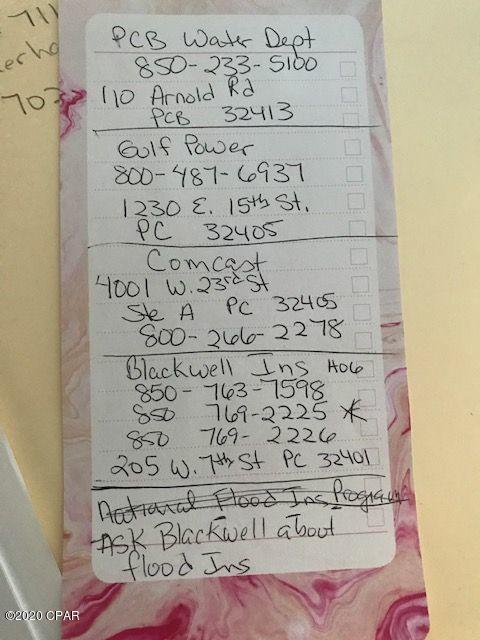 711
703
PCB Water Dept
850-233-5100
110 Arnold Rd
PCB 32413
Gulf Power
800-487-6937
1230 E. 15th St.
PC 32405
Comcast
4001 W. 23rd St
Ste A PC 32405
800-266-2278
Blackwell Ins HO6
850-763-7598
850 769-2225 *
850 769-2226
205 W. 7th St PC 32401
National Flood Ins Program
Ask Blackwell about
flood Ins
©2020 CPAR